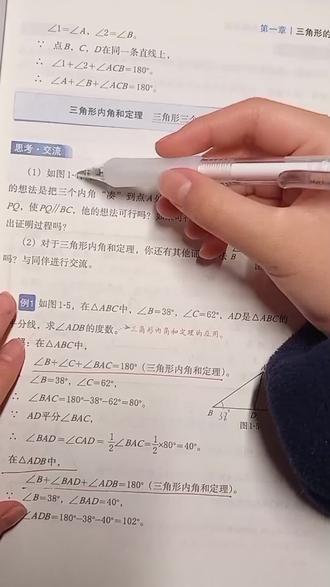 ∠1=∠A，∠2=∠B。
第一章 三角形的
∵ 点B，C，D在同一条直线上，
∴ ∠1+∠2+∠ACB=180°。
∴ ∠A+∠B+∠ACB=180°。
三角形内角和定理 三角形三个
思考·交流
（1）如图1-
的想法是把三个内角“凑”到点A
PQ，使PQ∥BC，他的想法可行吗？
出证明过程吗？
（2）对于三角形内角和定理，你还有其他证
吗？与同伴进行交流。
例1 如图1-5，在△ABC中，∠B=38°，∠C=62°，AD是△ABC的
平分线，求∠ADB的度数。 三角形内角和定理的应用。
解：在△ABC中，
∠B+∠C+∠BAC=180°（三角形内角和定理）。
∠B=38°，∠C=62°，
∴ ∠BAC=180°-38°-62°=80°。
∵ AD平分∠BAC，
∴ ∠BAD=∠CAD=1/2∠BAC=1/2×80°=40°。
在△ADB中，
∠B+∠BAD+∠ADB=180°（三角形内角和定理）。
∵ ∠B=38°，∠BAD=40°，
∠ADB=180°-38°-40°=102°。
B 38° D
图1-5